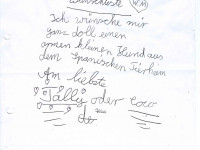 Wunschliste
Ich wünsche mir
ganz doll einen
armen kleinen Hund aus
dem Spanischen Tierheim
Am liebste
Tally oder coco